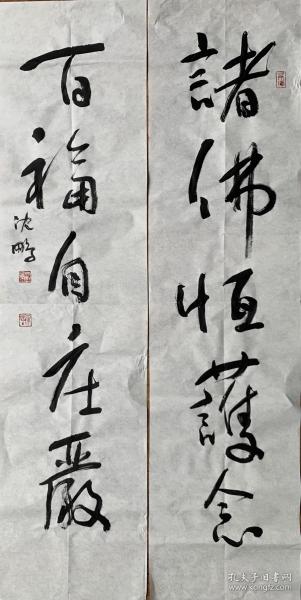 諸佛恒護念
百福自庄嚴
沈鵬
孔夫子旧书网